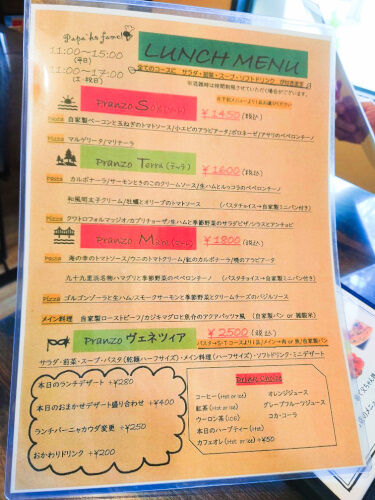 Papa's famel
LUNCH MENU
11:00〜15:00
(平日)
11:00〜17:00
(土・祝日)
全てのコースに サラダ・前菜・スープ・ソフトドリンク が付きます
※混雑時は時間制限させていただく場合がございます。
Pranzo Sole(ソーレ) ¥1450(税込) 右下記メニューより1品お選びください
Pasta 自家製ベーコンと玉ねぎのトマトソース/小エビのアラビアータ/ボロネーゼ/アサリのペペロンチーノ
Pizza マルゲリータ/マリナーラ
Pranzo Terra(テッラ) ¥1600(税込)
Pasta カルボナーラ/サーモンときのこのクリームソース/生ハムとルッコラのペペロンチーノ
和風明太子クリーム/牡蠣とオリーブのトマトソース (パスタチョイス→自家製ミニパン付き)
Pizza クワトロフォルマッジオ/カプリチョーザ/生ハムと季節野菜のサラダピザ/シラスとアンチョビ
Pranzo Mare(マーレ) ¥1800(税込)
Pasta 海の幸のトマトソース/ウニのトマトクリーム/紅のカルボナーラ/鴨のアラビアータ
九十九里浜名物ハマグリと季節野菜のペペロンチーノ (パスタチョイス→自家製ミニパン付き)
Pizza ゴルゴンゾーラと生ハム/スモークサーモンと季節野菜とクリームチーズのバジルソース
メイン料理 自家製ローストビーフ/カジキマグロと魚介のアクアパッツァ風 (自家製パン or 雑穀米)
Pranzo ヴェネツィア ¥2500(税込)
パスタ→S・Tコースより1品/メイン→肉 or 魚/自家製パン
サラダ・前菜・スープ・パスタ(乾麺ハーフサイズ)・メイン料理(ハーフサイズ)・ソフトドリンク・ミニデザート
本日のランチデザート +¥280
本日のおまかせデザート盛り合わせ +¥400
ランチバーニャカウダ変更 +¥250
おかわりドリンク +¥200
Drink Choice
コーヒー(Hot or Ice) オレンジジュース
紅茶(Hot or Ice) グレープフルーツジュース
ウーロン茶(ICE) コカ・コーラ
本日のハーブティー(Hot)
カフェオレ(Hot or Ice) +¥50